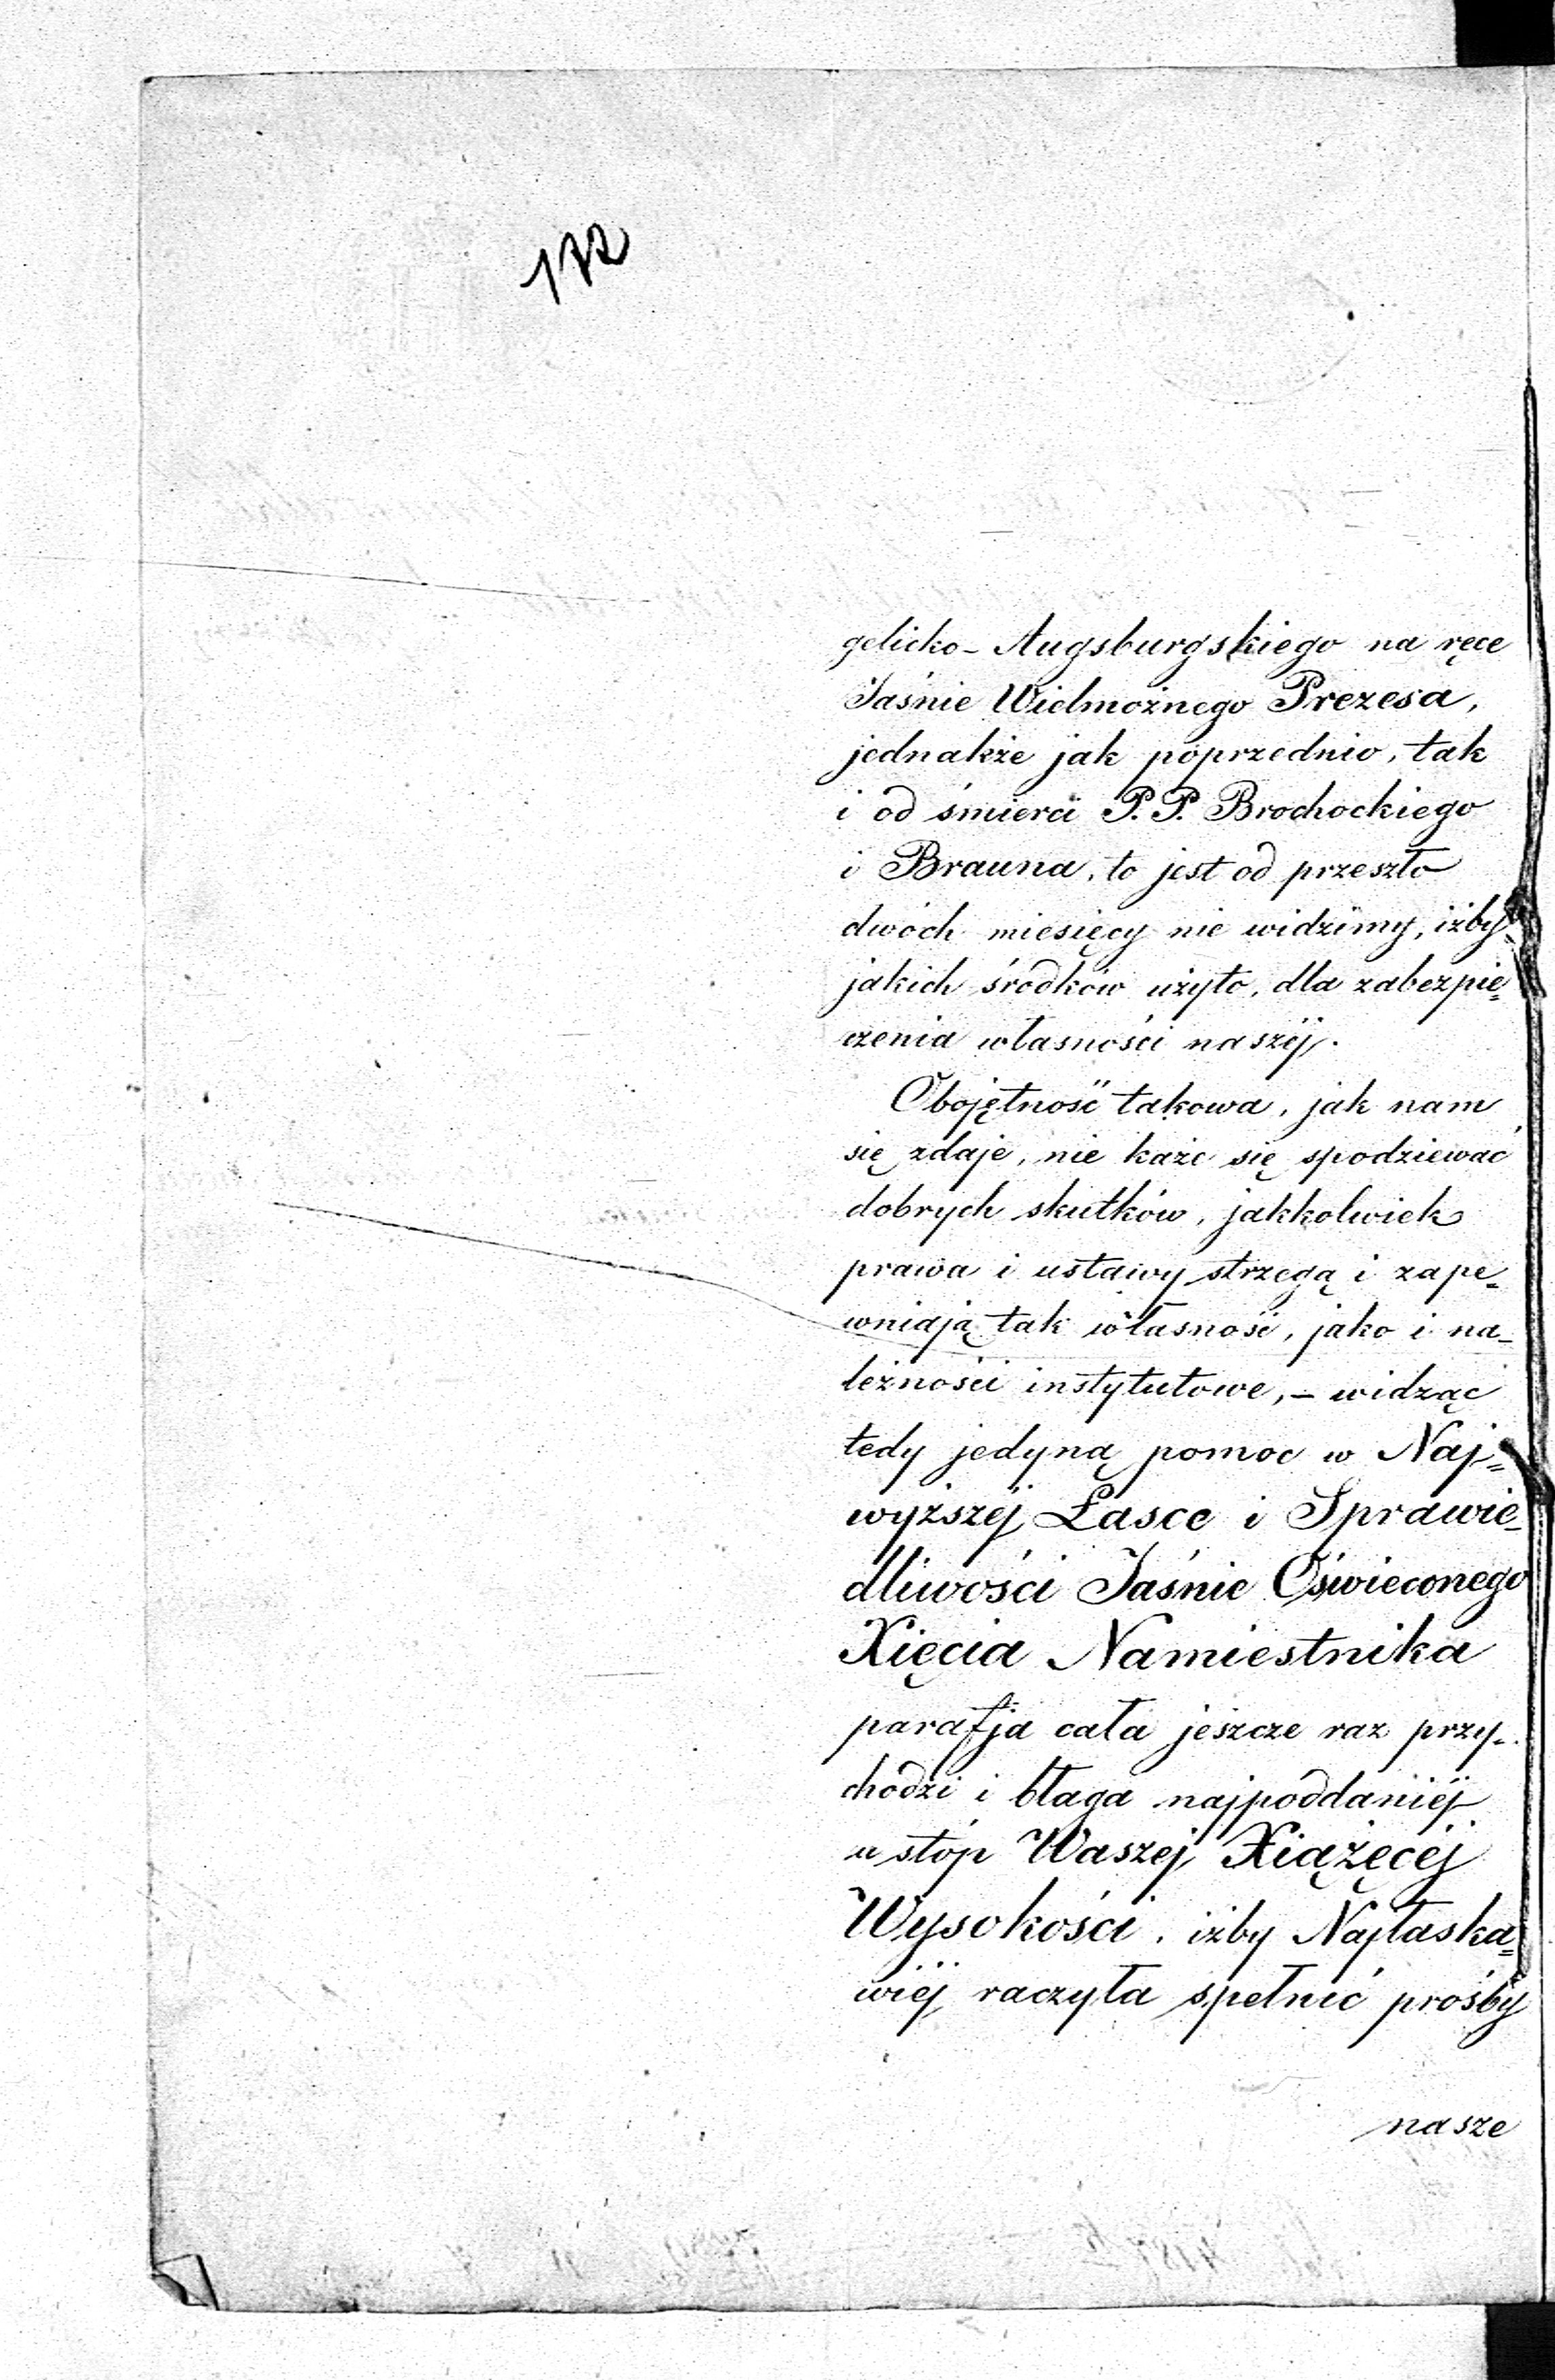 172
gelicko- Augsburgskiego na ręce
Jaśnie Wielmożnego Prezesa,
jednakże jak poprzednio, tak
i od śmierci P. P. Brochockiego
i Brauna, to jest od przeszło
dwóch miesięcy nie widzimy, iżby
jakich środków użyto, dla zabezpie=
czenia własności naszéj.
Obojętność takowa, jak nam
się zdaje, nie każe się spodziewać
dobrych skutków, jakkolwiek
prawa i ustawy strzegą i zape=
wniają tak własność, jako i na-
leżności instytutowe, – widząc
tedy jedyną pomoc w Naj=
wyższéj Łasce i Sprawie=
dliwości Jaśnie Oświeconego
Xięcia Namiestnika
parafja cała jeszcze raz przy-
chodzi i błaga najpoddaniéj
u stóp Waszej Xiążęcéj
Wysokości, iżby Najłaska=
wiéj raczyła spełnić prośby
nasze